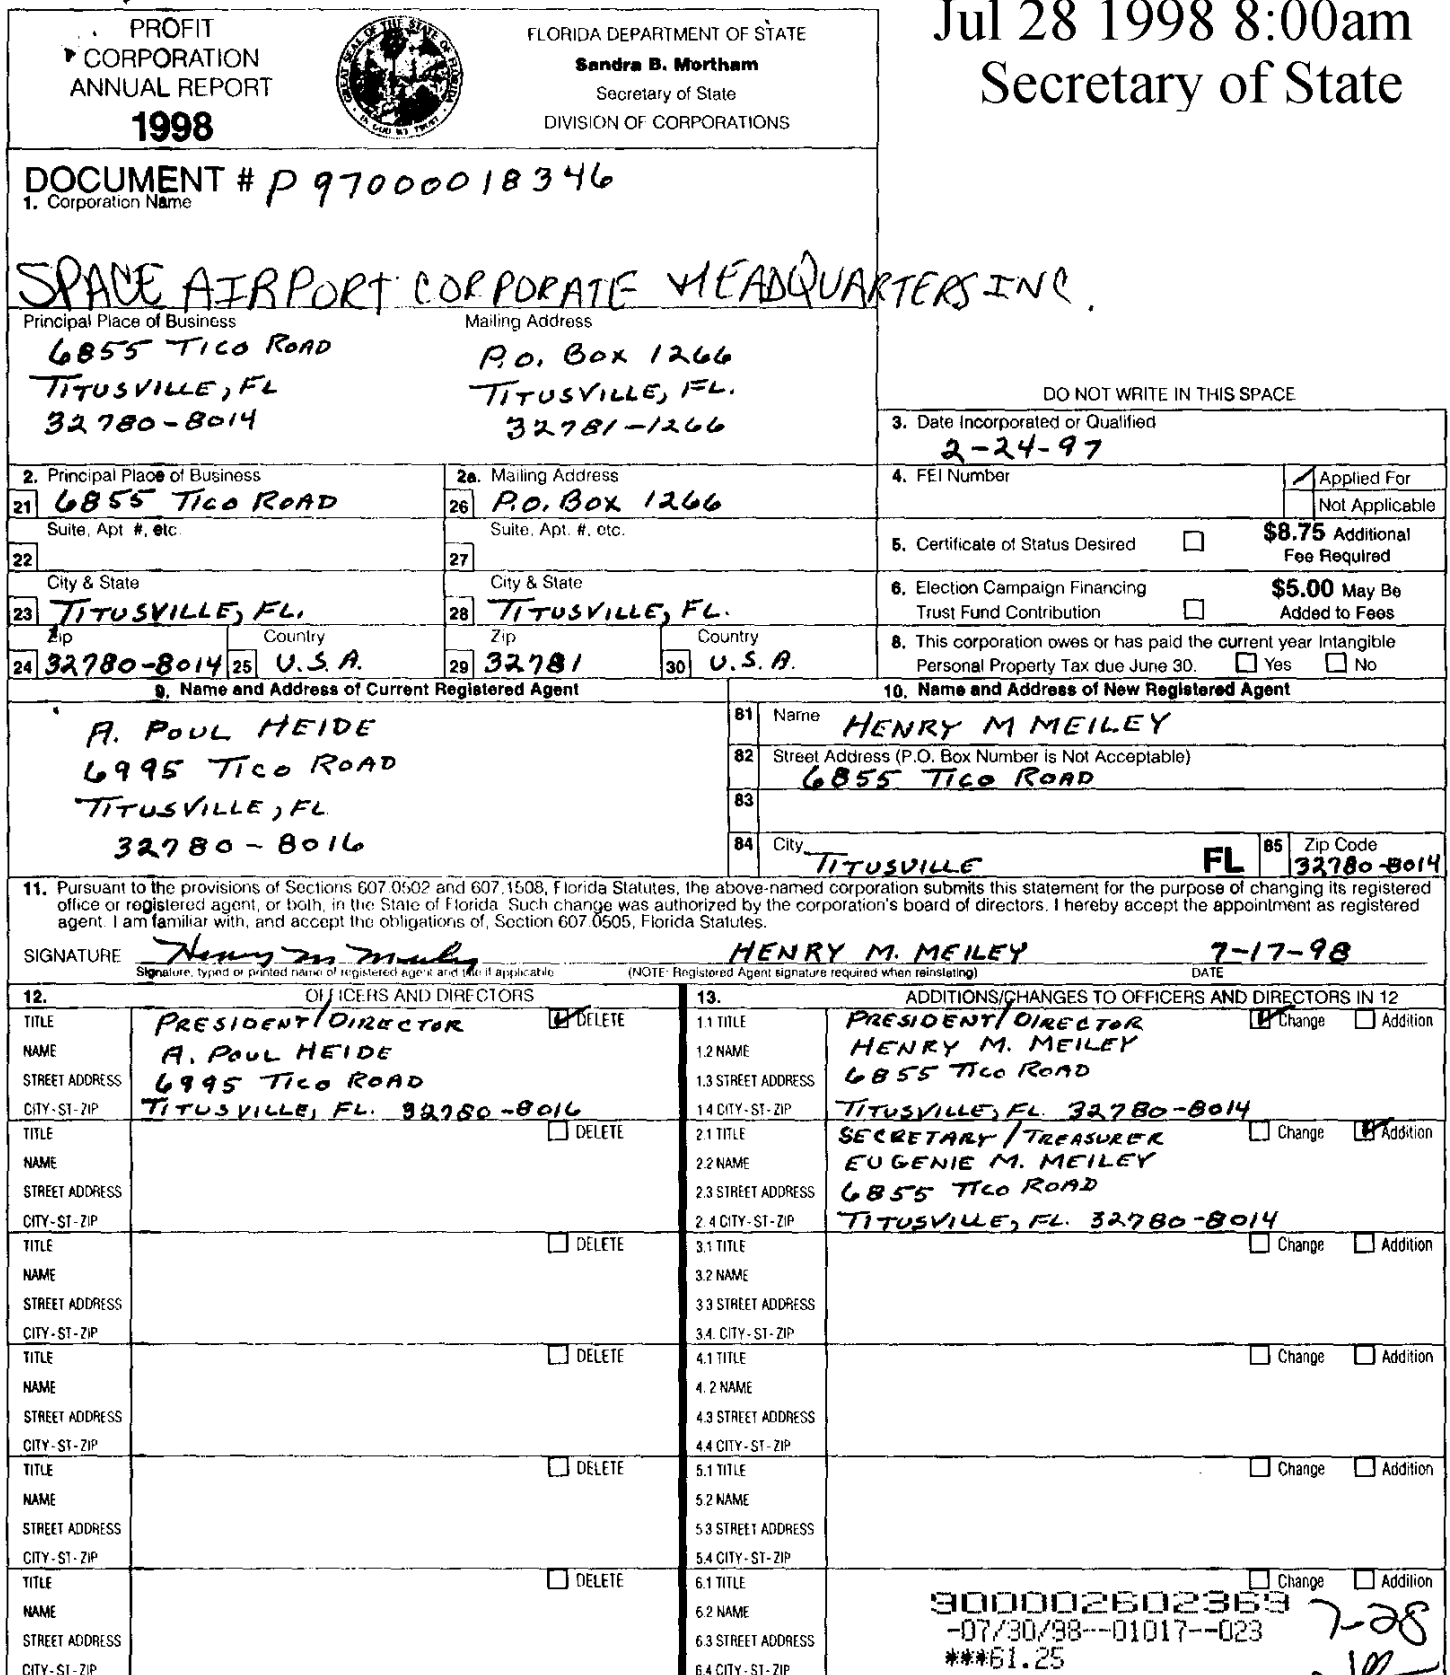 PROFIT
CORPORATION
ANNUAL REPORT
1998
FLORIDA DEPARTMENT OF STATE
Sandra B. Mortham
Secretary of State
DIVISION OF CORPORATIONS
Jul 28 1998 8:00am
Secretary of State
DOCUMENT # P97000018346
1. Corporation Name
SPACE AIRPORT CORPORATE HEADQUARTERS INC.
Principal Place of Business Mailing Address
6855 TICO ROAD P.O. BOX 1266
TITUSVILLE, FL TITUSVILLE, FL.
32780-8014 32781-1266
DO NOT WRITE IN THIS SPACE
3. Date Incorporated or Qualified
2-24-97
2. Principal Place of Business 2a. Mailing Address
21 6855 TICO ROAD 26 P.O. BOX 1266
Suite, Apt #, etc. Suite, Apt. #, etc.
22 27
City & State City & State
23 TITUSVILLE, FL. 28 TITUSVILLE, FL.
Zip Country Zip Country
24 32780-8014 25 U.S.A. 29 32781 30 U.S.A.
4. FEI Number Applied For
Not Applicable
5. Certificate of Status Desired $8.75 Additional
Fee Required
6. Election Campaign Financing $5.00 May Be
Trust Fund Contribution Added to Fees
8. This corporation owes or has paid the current year Intangible
Personal Property Tax due June 30. Yes No
9. Name and Address of Current Registered Agent
A. POUL HEIDE
6995 TICO ROAD
TITUSVILLE, FL
32780-8016
10. Name and Address of New Registered Agent
81 Name HENRY M MEILEY
82 Street Address (P.O. Box Number is Not Acceptable)
6855 TICO ROAD
83
84 City TITUSVILLE FL 85 Zip Code 32780-8014
11. Pursuant to the provisions of Sections 607.0502 and 607.1508, Florida Statutes, the above-named corporation submits this statement for the purpose of changing its registered
office or registered agent, or both, in the State of Florida. Such change was authorized by the corporation's board of directors. I hereby accept the appointment as registered
agent. I am familiar with, and accept the obligations of, Section 607.0505, Florida Statutes.
SIGNATURE Henry M Meiley HENRY M. MEILEY 7-17-98
Signature, typed or printed name of registered agent and title if applicable (NOTE: Registered Agent signature required when reinstating) DATE
12. OFFICERS AND DIRECTORS
TITLE PRESIDENT/DIRECTOR DELETE
NAME A. POUL HEIDE
STREET ADDRESS 6995 TICO ROAD
CITY-ST-ZIP TITUSVILLE, FL. 32780-8016
TITLE DELETE
NAME
STREET ADDRESS
CITY-ST-ZIP
TITLE DELETE
NAME
STREET ADDRESS
CITY-ST-ZIP
TITLE DELETE
NAME
STREET ADDRESS
CITY-ST-ZIP
TITLE DELETE
NAME
STREET ADDRESS
CITY-ST-ZIP
TITLE DELETE
NAME
STREET ADDRESS
CITY-ST-ZIP
13. ADDITIONS/CHANGES TO OFFICERS AND DIRECTORS IN 12
1.1 TITLE PRESIDENT/DIRECTOR Change Addition
1.2 NAME HENRY M. MEILEY
1.3 STREET ADDRESS 6855 TICO ROAD
1.4 CITY-ST-ZIP TITUSVILLE, FL. 32780-8014
2.1 TITLE SECRETARY/TREASURER Change Addition
2.2 NAME EUGENIE M. MEILEY
2.3 STREET ADDRESS 6855 TICO ROAD
2.4 CITY-ST-ZIP TITUSVILLE, FL. 32780-8014
3.1 TITLE Change Addition
3.2 NAME
3.3 STREET ADDRESS
3.4. CITY-ST-ZIP
4.1 TITLE Change Addition
4.2 NAME
4.3 STREET ADDRESS
4.4 CITY-ST-ZIP
5.1 TITLE Change Addition
5.2 NAME
5.3 STREET ADDRESS
5.4 CITY-ST-ZIP
6.1 TITLE Change Addition
6.2 NAME
6.3 STREET ADDRESS
6.4 CITY-ST-ZIP
900002602369
-07/30/98--01017--023
***61.25
7-28